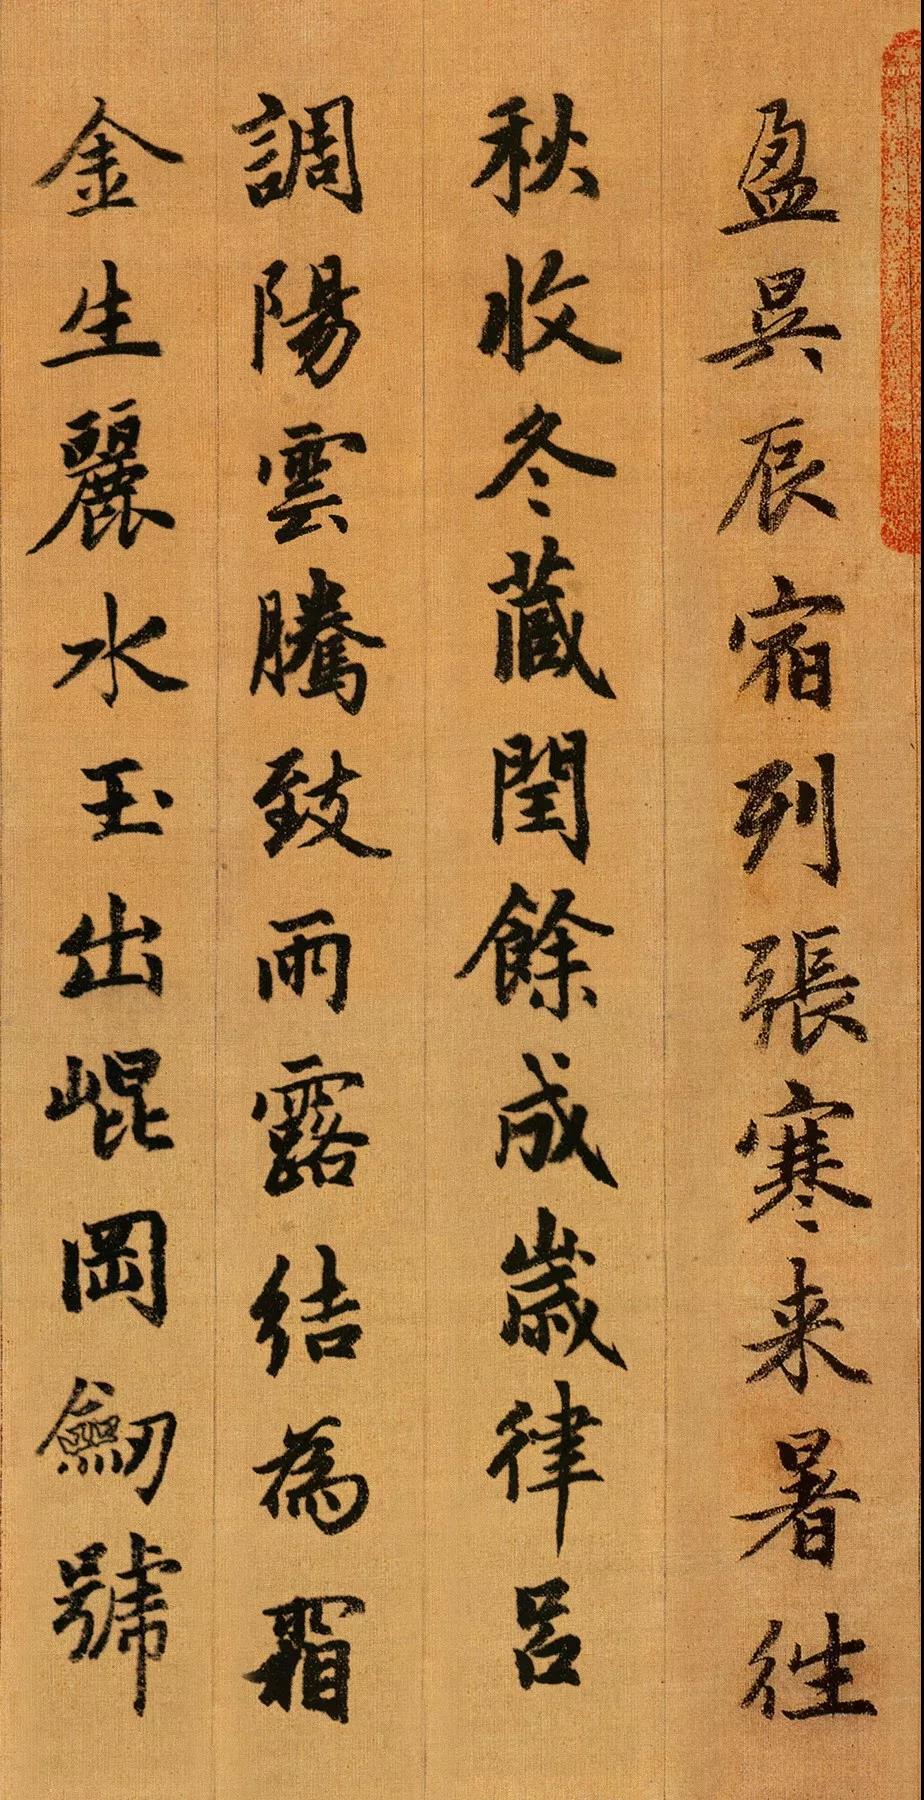 盈昃辰宿列張寒来暑往
秋收冬蔵閏餘成歲律呂
調陽雲騰致雨露結為霜
金生麗水玉出崐岡劒號